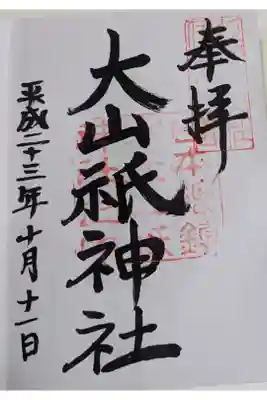 奉拝
大山祇神社
平成二十三年十月十一日